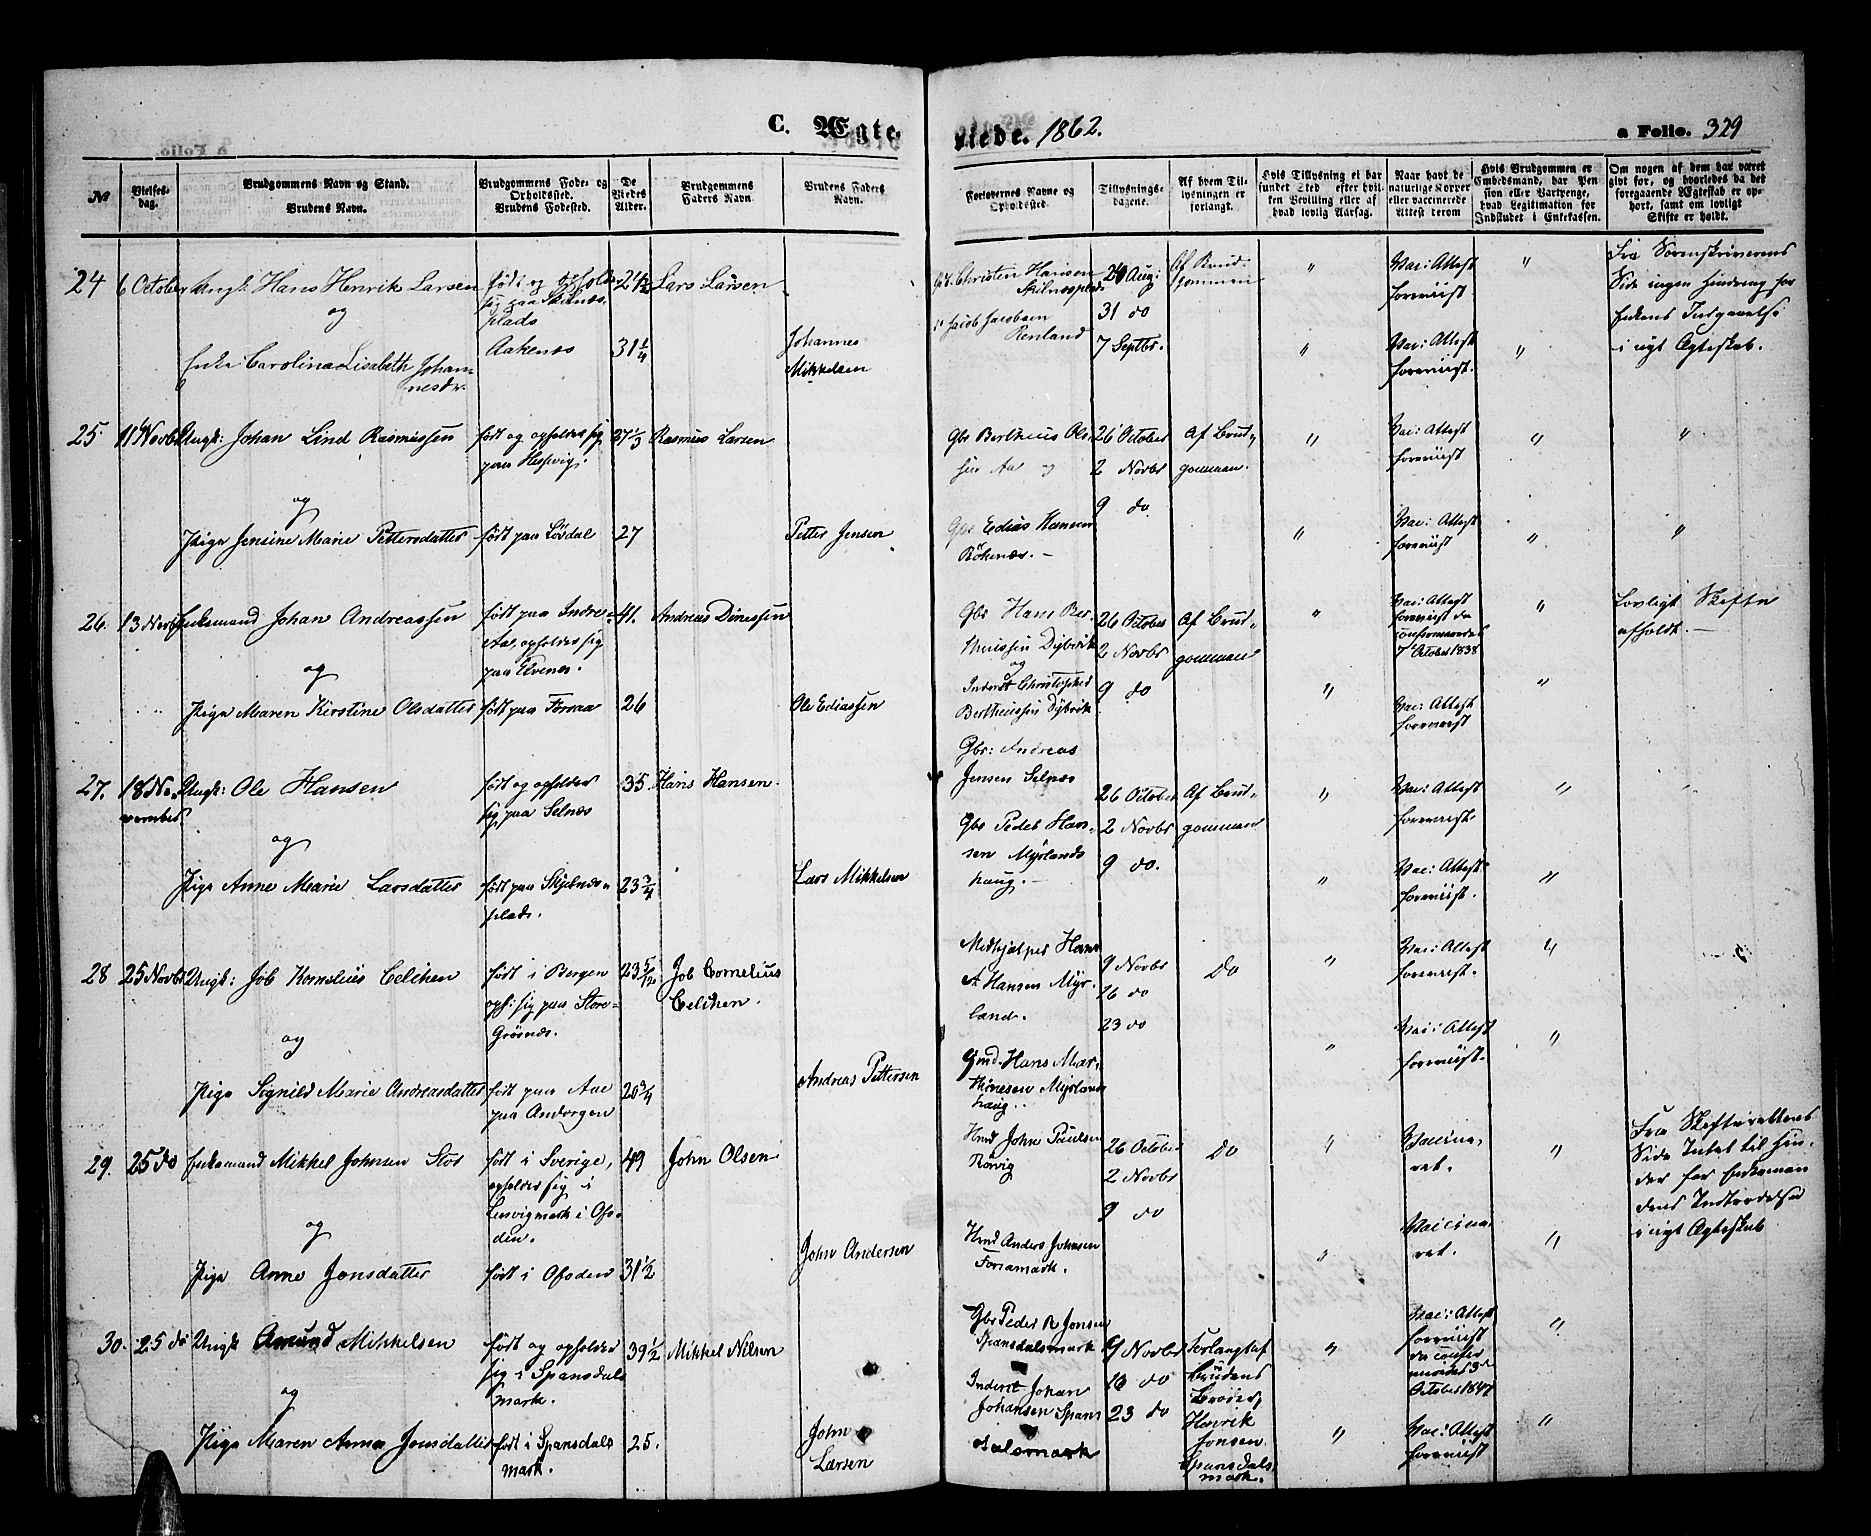 C. Ægte.
viede. 1862.
a Folio. 329
No
Vielses-
dag.
Brudgommens Navn og Stand.
Brudens Navn.
Brudgommens Føde- og
Opholdssted.
Brudens Fødested.
De
Viedes
Alder.
Brudgommens
Faders Navn.
Brudens Faders
Navn.
Forlovernes Navne og
Opholdssted.
Tillysnings-
dagene.
Af hvem Til-
lysningen er
forlangt.
Hvis Tillysning ei har
fundet Sted efter hvil-
ken Bevilling eller af
hvad lovlig Aarsag.
Naar havt de
naturlige Kopper
eller vaccinerede
Attest derom
Hvis Brudgommen er
Embedsmand, har Pen
sion eller Vartpenge,
hvad Legitimation for
Indskudet i Enkekassen.
Om nogen af dem har været
gift før, og hvorledes da det
foregaaende Ægteskab er op-
hørt, samt om lovligt
Skifte er holdt.
24 6 October Ungk: Hans Henrik Larsen
og
Enke Carolina Lisabeth Johan-
nesdr.
født og opholder
sig paa
plads
Aakenes
31 1/4
Lars Larsen
Johannes
Mikkelsen
Christen Hansen
Jacob Jacobsen
Renland
24 Aug:
31 do
7 Septbr.
Af Brud-
gommen
"
"
Vac: Attest
foreviist
Vac: Attest
foreviist.
"
"
Fra Sorenskriverens
Side ingen Hindring for
Enkens Indgaaelse
i nyt Ægteskab.
25 11 Novbr Ungk: Johan Lind Rasmussen
og
Pige Jensine Marie Pettersdatter
født og opholder sig
paa
født paa Lövdal
37 1/3
27
Rasmus Larsen
Petter Jensen
Gbr Bertheus Ol-
sen Aa og
Gbr Edias Hansen
Bökenæs. -
26 October
2 Novbr
9 do
Af Brud-
gommen.
"
"
Vac: Attest
foreviist
Vac: Attest
foreviist
"
"
"
"
26. 13 Novbr Enkemand Johan Andreassen
og
Pige Maren Kirstine Olsdatter
født paa Indre-
Aa, opholder sig
paa Elvenes.
født paa Forraa
41.
26
Andreas Dinessen
Ole Ediassen
Gbr Hans Ber-
theussen Dybvik
og
Inderst Christopher
Bertheussen Dybvik
26 October
2 Novbr
9 do
Af Brud-
gommen
"
"
Vac: Attest
foreviist da
confirmeredes
7 October 1838
Vac: Attest
foreviist
"
"
Lovligt Skifte
afholdt. -
27. 18 No-
vember Ungk: Ole Hansen
og
Pige Anne Marie Larsdatter
født og opholder
sig paa Selnæs
født paa Skjelnæs-
plads.
35
23 3/4
Hans Hansen
Lars Mikkelsen
Gbr: Andreas
Jensen Selnæs
Gbr Peder Han-
sen Myrlands
haug. -
26 October
2 Novbr
9 do.
Af Brud-
gomman
"
"
Vac: Attest
foreviist.
Vac: Attest
foreviist.
"
"
28 25 Novbr Ungk: Job Kornelius Celiken
og
Pige Signild Marie Andreasdatter
født i Bergen
oph: sig paa Store-
Grösnæs.
født paa Aae
paa Andorgen
23 5/12
20 3/4
Job Cornelius
Celiken.
Andreas Pettersen
Medhjælper Hans
A Hansen Myr-
land.
Gmd. Hans Mar-
thinesen Myrlands
haug.
9 Novbr
16 do
23 do
Do
"
"
Vac: Attest
foreviist.
Vac: Attest
foreviist.
"
"
29. 25 do Enkemand Mikkel Johnsen Stos
og
Pige Anne Jonsdatter
født i Sverige,
opholder sig i
Lervigmark i Ofo-
den.
født i Ofoden
49
31 1/2
John Olsen
John Andersen
Hmd John Paulsen
Rørvig
Hmd Anders Johnsen
Forramark.
26 October
2 Novbr
9 do
Do
"
"
Vaccine-
ret.
Vaccine-
ret.
"
"
Fra Skifterettens
Side Intet til Hin-
der for Enkeman
dens Indtrædelse
i nyt Ægteskab
30. 25 do Ungk Amund Mikkelsen
og
Pige Maren Anna Jonsdatter
født og opholder
sig i Spansdals
mark.
født i Spansdals
mark.
39 1/2
25.
Mikkel Nilsen
John
Larsen
Gbr Peder R Jonsen
Spansdalsmark
Inderst Johan
Johansen Spans
dalsmark
9 Novbr
16 do
23 do
Forlangt af
Brudens
Broder
Henrik
Jonsen
Spansdals
mark.
"
"
Vac: Attest
foreviist
da confir
meredes 3
October 1847
Vac: Attest
foreviist
"
"